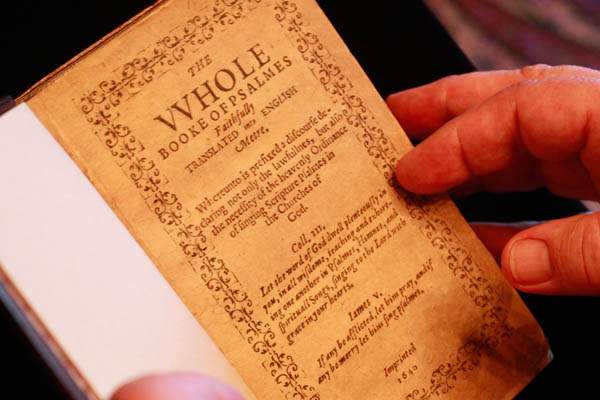 THE
VVHOLE
BOOKE OF PSALMES
Faithfully
TRANSLATED into ENGLISH
Metre.
Whereunto is prefixed a discourse de-
claring not only the lawfullnes, but also
the necessity of the heavenly Ordinance
of singing Scripture Psalmes in
the Churches of
God.
Coll. III.
Let the word of God dwell plenteously in
you, in all wisdome, teaching and exhort-
ing one another in Psalmes, Himnes, and
spirituall Songs, singing to the Lord with
grace in your hearts.
Iames V.
If any be afflicted, let him pray, and if
any be merry let him sing psalmes.
Imprinted
1640